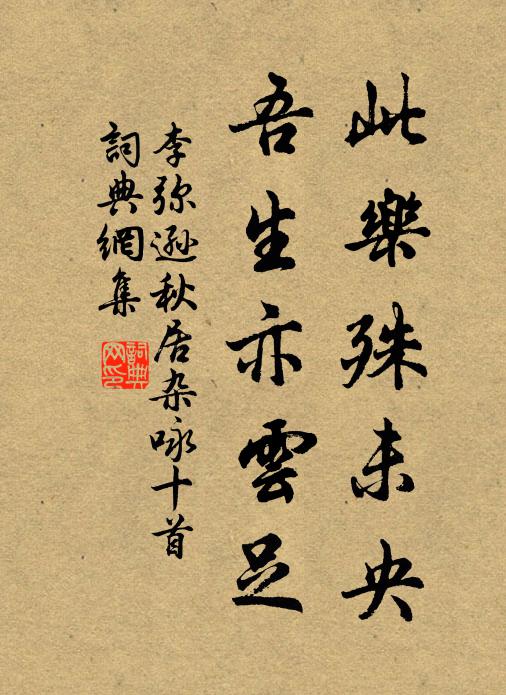 此樂殊未央
吾生亦雲足
李弥遜秋居杂咏十首
詞典網集
詞典网印